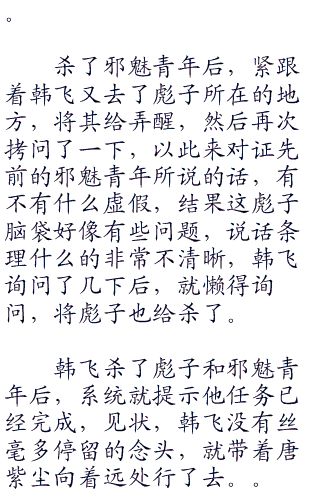 。
杀了邪魅青年后，紧跟
着韩飞又去了彪子所在的地
方，将其给弄醒，然后再次
拷问了一下，以此来对证先
前的邪魅青年所说的话，有
不有什么虚假，结果这彪子
脑袋好像有些问题，说话条
理什么的非常不清晰，韩飞
询问了几下后，就懒得询
问，将彪子也给杀了。
韩飞杀了彪子和邪魅青
年后，系统就提示他任务已
经完成，见状，韩飞没有丝
毫多停留的念头，就带着唐
紫尘向着远处行了去。。